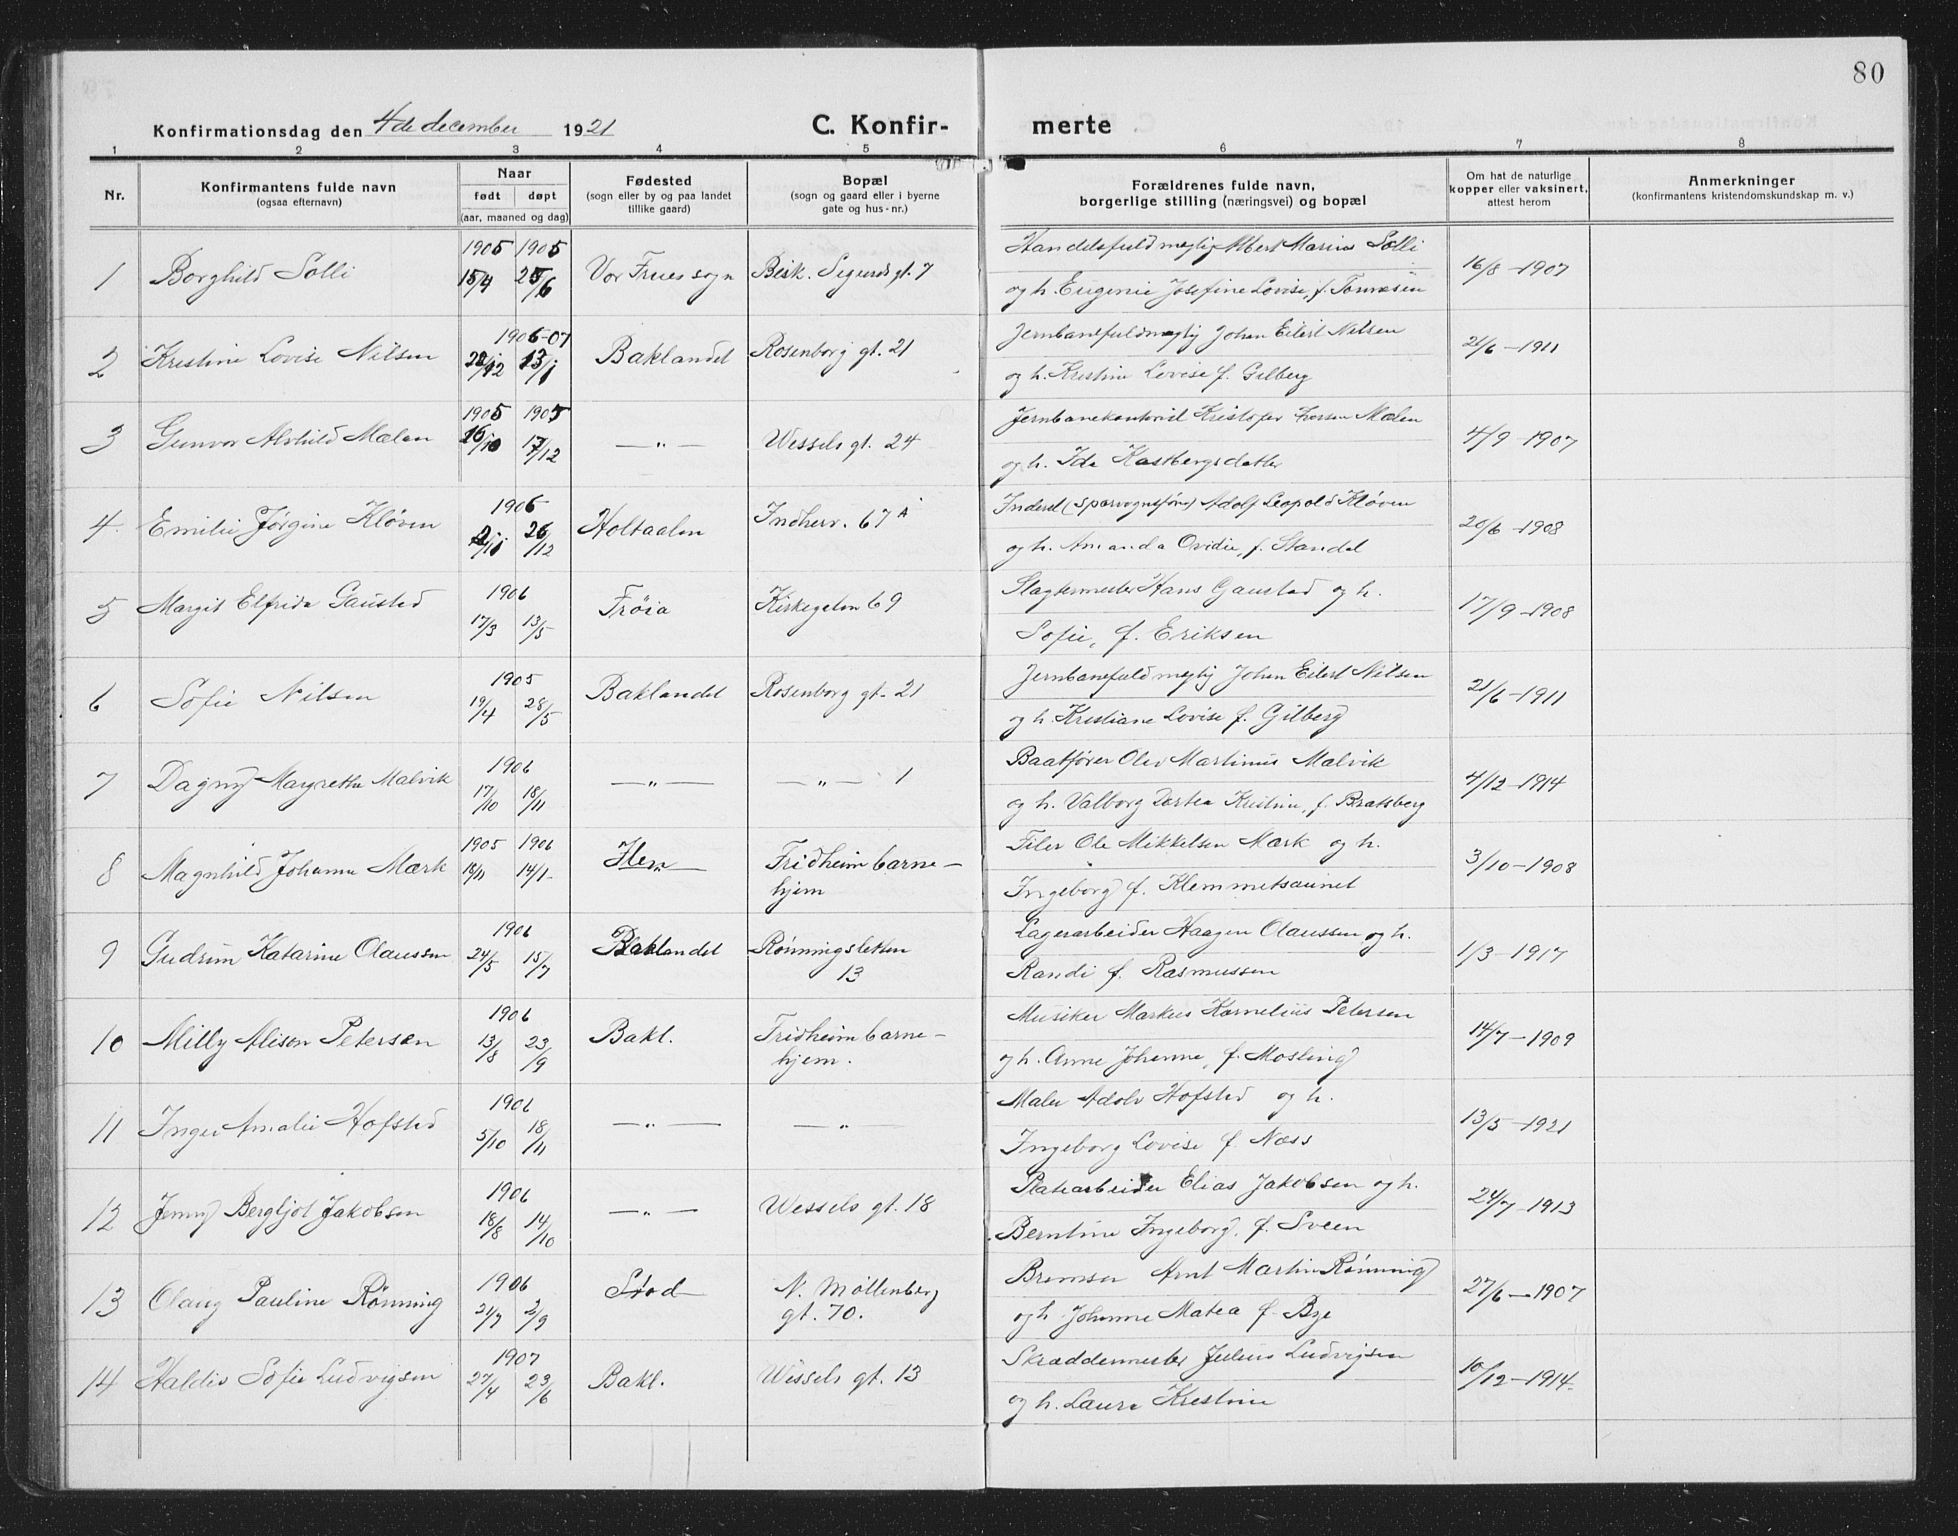 80
Konfirmationsdag den 4de december 1921
C. Konfirmerte
1 2 3 4 5 6 7 8
Nr.
Konfirmantens fulde navn
(ogsaa efternavn)
Naar
født døpt
(aar, maaned og dag)
Fødested
(sogn eller by og paa landet
tillike gaard)
Bopæl
(sogn og gaard eller i byerne
gate og hus-nr.)
Forældrenes fulde navn,
borgerlige stilling (næringsvei) og bopæl
Om hat de naturlige
kopper eller vaksinert,
attest herom
Anmerkninger
(konfirmantens kristendomskundskap m. v.)
1905 1905 Handelsfuldmegtig Albert Marius Solli
1 Borghild Solli 15/4 25/6 Vor Frues sogn Bisk. Sigurds gt. 7 16/8-1907
og h. Eugenie Josefine Lovise, f. Tønnesen
1906-07 Jernbanefuldmegtig Johan Eilert Nilsen
2 Kristine Lovise Nilsen 28/12 13/1 Baklandet Rosenborg gt. 21 21/6-1911
og h. Kristine Lovise f. Gilberg
1905 1905 Jernbanekontorist Kristofer Larsen Mælen
3 Gunvor Alvhild Mælen 16/10 17/12 —"— Wessels gt. 24 4/9-1907
og h. Ida Kastbergsdatter
1906 Indersl (Sporvognsfører) Adolf Leopold Kløven
4. Emilie Jørgine Kløven 2/11 26/12 Holtaalen Indherv. 67 A 20/6-1908
og h. Amanda Ovidie, f. Standal
1906 Slagtermester Hans Gaustad og h.
5 Margit Elfrida Gaustad 17/3 13/5 Frøia Kirkegaten 69 17/9-1908
Sofie, f. Eriksen
1905 Jernbanefuldmegtig Johan Eilert Nilsen
6 Sofie Nilsen 19/4 28/5 Baklandet Rosenborg gt. 21 21/6-1911
og h. Kristiane Lovise f. Gilberg
1906 Baatfører Olav Martinus Malvik
7 Dagny Margrethe Malvik 17/10 18/11 —"— —"— 1 4/12-1914
og h. Valborg Dortea Kristine, f. Bratsberg
1905 1906 Filer Ole Mikkelsen Mærk og h.
8 Magnhild Johanne Mærk 18/11 14/1 Ilen Fridheim barne-
hjem 3/10-1908
Ingeborg f. Klemmetsaunet
1906 Lagerarbeider Haagen Olaussen og h.
9 Gudrun Katarine Olaussen 24/5 15/7 Baklandet Rønningsletten
13 1/3-1917
Randi f. Rasmussen
1906 Musiker Markus Kornelius Petersen
10 Milly Alison Petersen 13/8 23/9 Bakl. Fridheim barne-
hjem. 14/7-1909
og h. Anne Johanne, f. Mosling
1906 Maler Adolv Hofstad og h.
11 Inger Amalie Hofstad 5/10 18/11 —"— —"— 13/5-1921
Ingeborg Lovise f. Næss
1906 Platearbeider Elias Jakobsen og h.
12 Jenny Bergljot Jakobsen 18/8 14/10 —"— Wessels gt. 18 24/7-1913
Berntine Ingeborg, f. Sveen
1906 Bremser Arnt Martin Rønning
13 Olaug Pauline Rønning 21/7 2/9 Stod N. Møllenberg
gt. 70. 27/6-1907
og h. Johanne Matea f. Bye
1907 Skræddermester Julius Ludvigsen
14 Haldis Sofie Ludvigsen 27/4 23/6 Bakl. Wessels gt. 13 10/12-1914.
og h. Laura Kristine